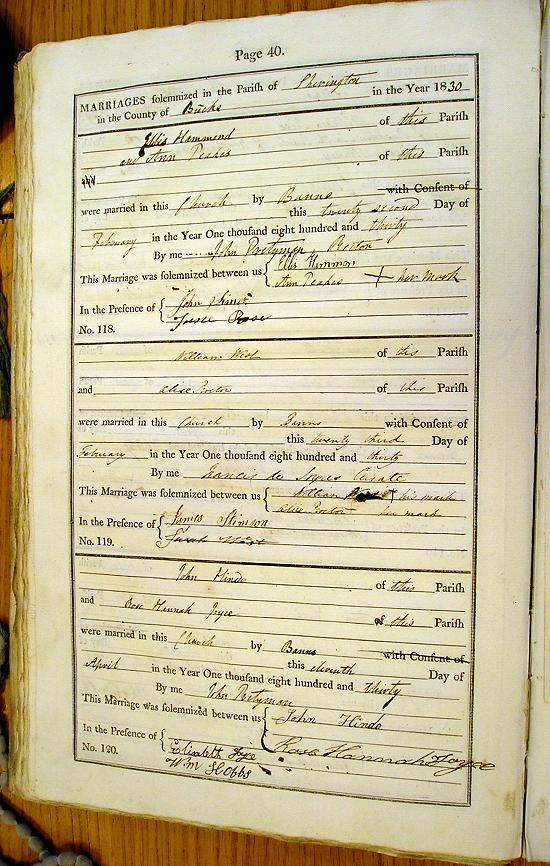 Page 40.
MARRIAGES solemnized in the Parish of Sherington
in the County of Bucks in the Year 1830
Ellis Hammond of this Parish
and Ann Peakes of this Parish
were married in this Church by Banns with Consent of
this twenty second Day of
February in the Year One thousand eight hundred and thirty
By me John Pretyman, Rector
This Marriage was solemnized between us { Ellis Hammon
Ann Peakes X her Mark
In the Presence of { John
Rose
No. 118.
William West of this Parish
and Alice Proctor of this Parish
were married in this Church by Banns with Consent of
this twenty third Day of
February in the Year One thousand eight hundred and thirty
By me Francis de Curate
This Marriage was solemnized between us { William his mark
Alice Proctor her mark
In the Presence of { James Stimson
Sarah West
No. 119.
John Hinde of this Parish
and Rose Hannah Joyce of this Parish
were married in this Church by Banns with Consent of
this eleventh Day of
April in the Year One thousand eight hundred and thirty
By me John Pretyman
This Marriage was solemnized between us { John Hinde
Rose Hannah Joyce
In the Presence of { Elizabeth Joyce
Wm Hobbs
No. 120.